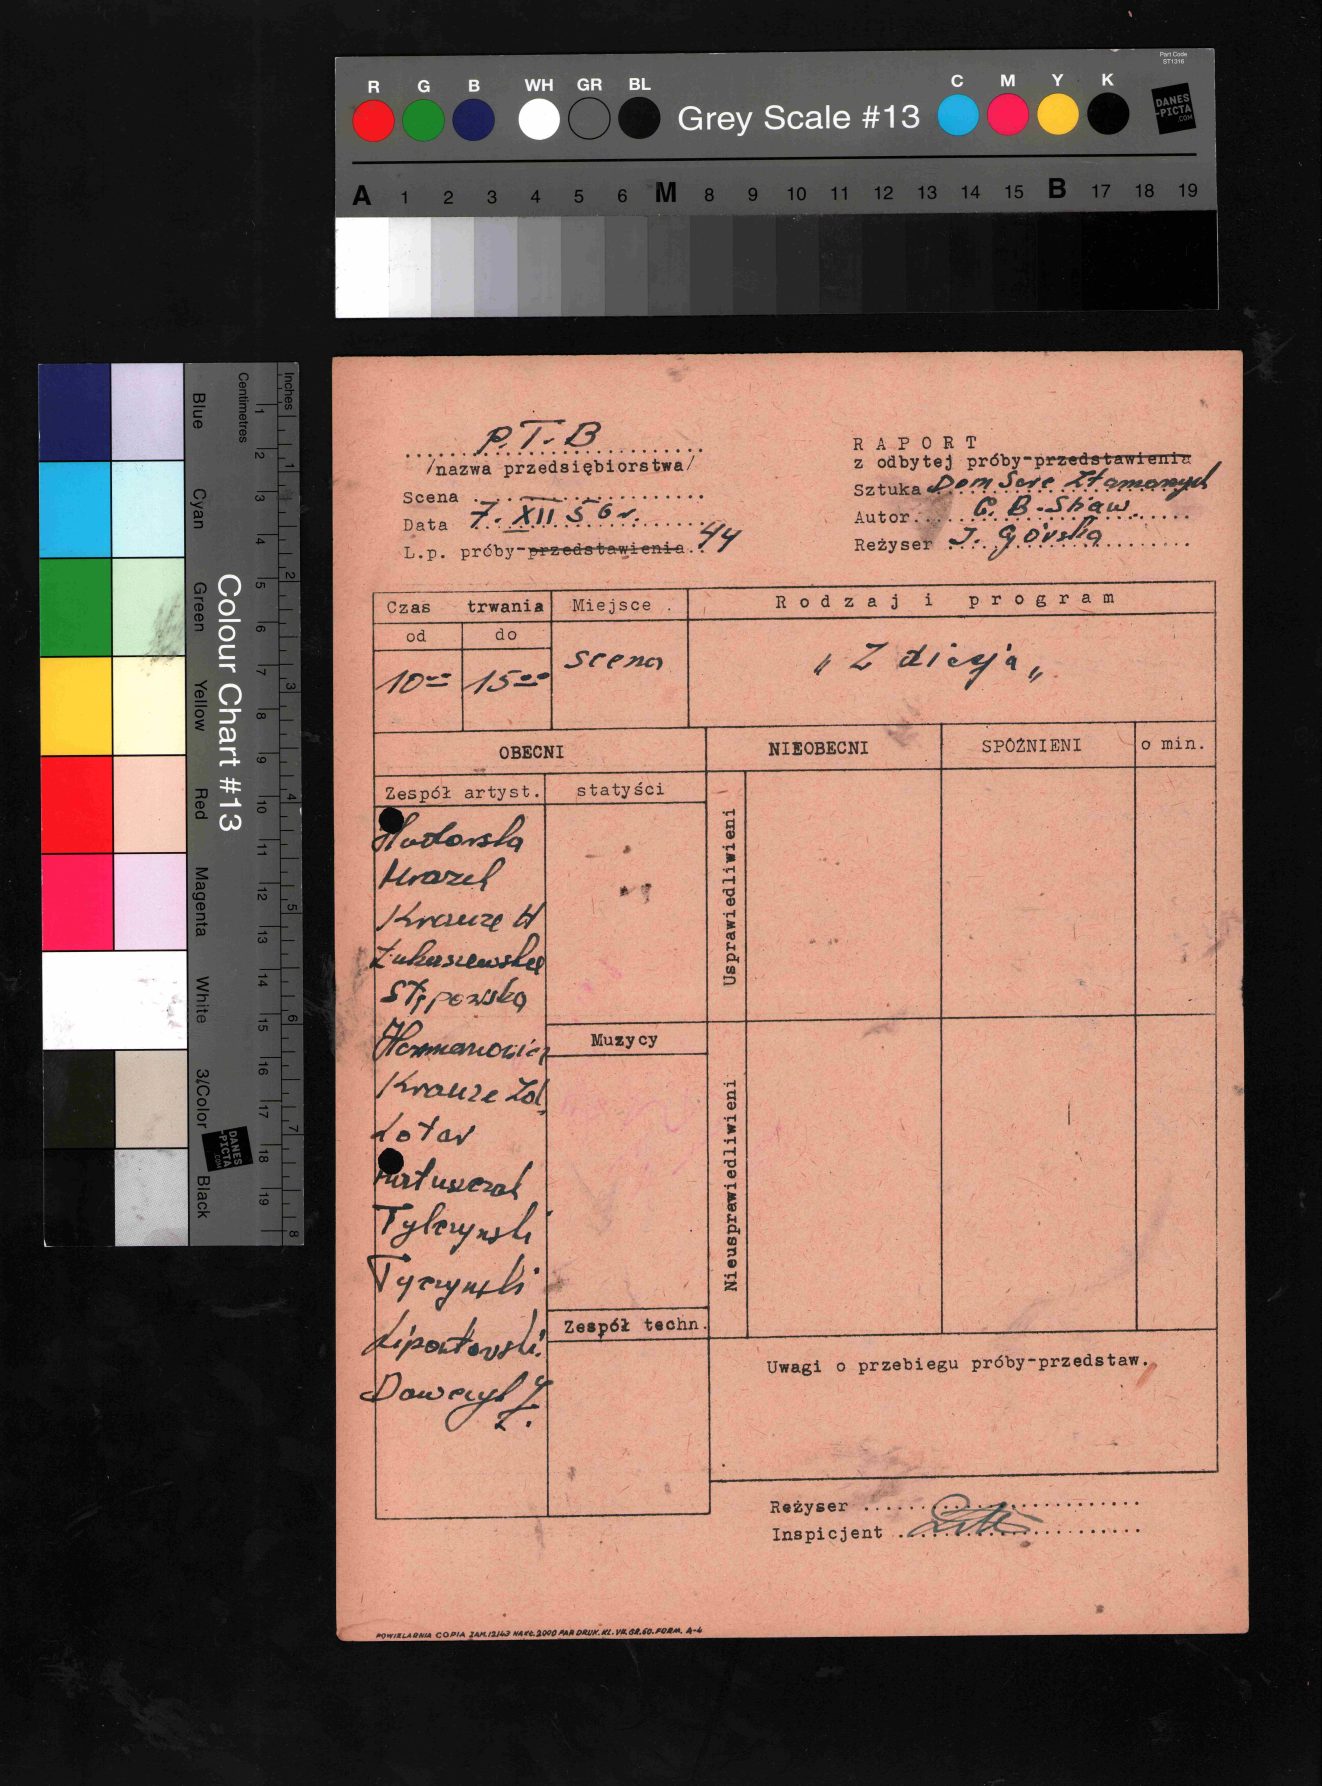 Part Code
ST1316
R G B WH GR BL Grey Scale #13 C M Y K
DANES
-PICTA
.COM
A 1 2 3 4 5 6 M 8 9 10 11 12 13 14 15 B 17 18 19
Colour Chart #13
Blue Cyan Green Yellow Red Magenta White 3/Color Black
Centimetres
1 2 3 4 5 6 7 8 9 10 11 12 13 14 15 16 17 18 19
Inches
1 2 3 4 5 6 7 8
DANES
-PICTA
.COM
P.T.B
/nazwa przedsiębiorstwa/
Scena
Data 7. XII 56 r.
L.p. próby-przedstawienia 44
RAPORT
z odbytej próby-przedstawienia
Sztuka Dom Serc Złamanych
Autor G. B. Shaw
Reżyser I. Górska
Czas trwania Miejsce Rodzaj i program
od do
10 00 15 00 scena
OBECNI NIEOBECNI SPÓŹNIENI o min.
Zespół artyst. statyści
Usprawiedliwieni
Mrozek
Krauze H
Łukaszewska
Stępowska
Muzycy
Krauze Zol.
Lotar
Nieusprawiedliwieni
Tylczyński
Tyczyński
Zespół techn.
Uwagi o przebiegu próby-przedstaw.
Reżyser
Inspicjent
POWIELARNIA COPIA ZAM.12143 NAKŁ.2000 PAP. DRUK. KL. VII. GR.60. FORM. A-4